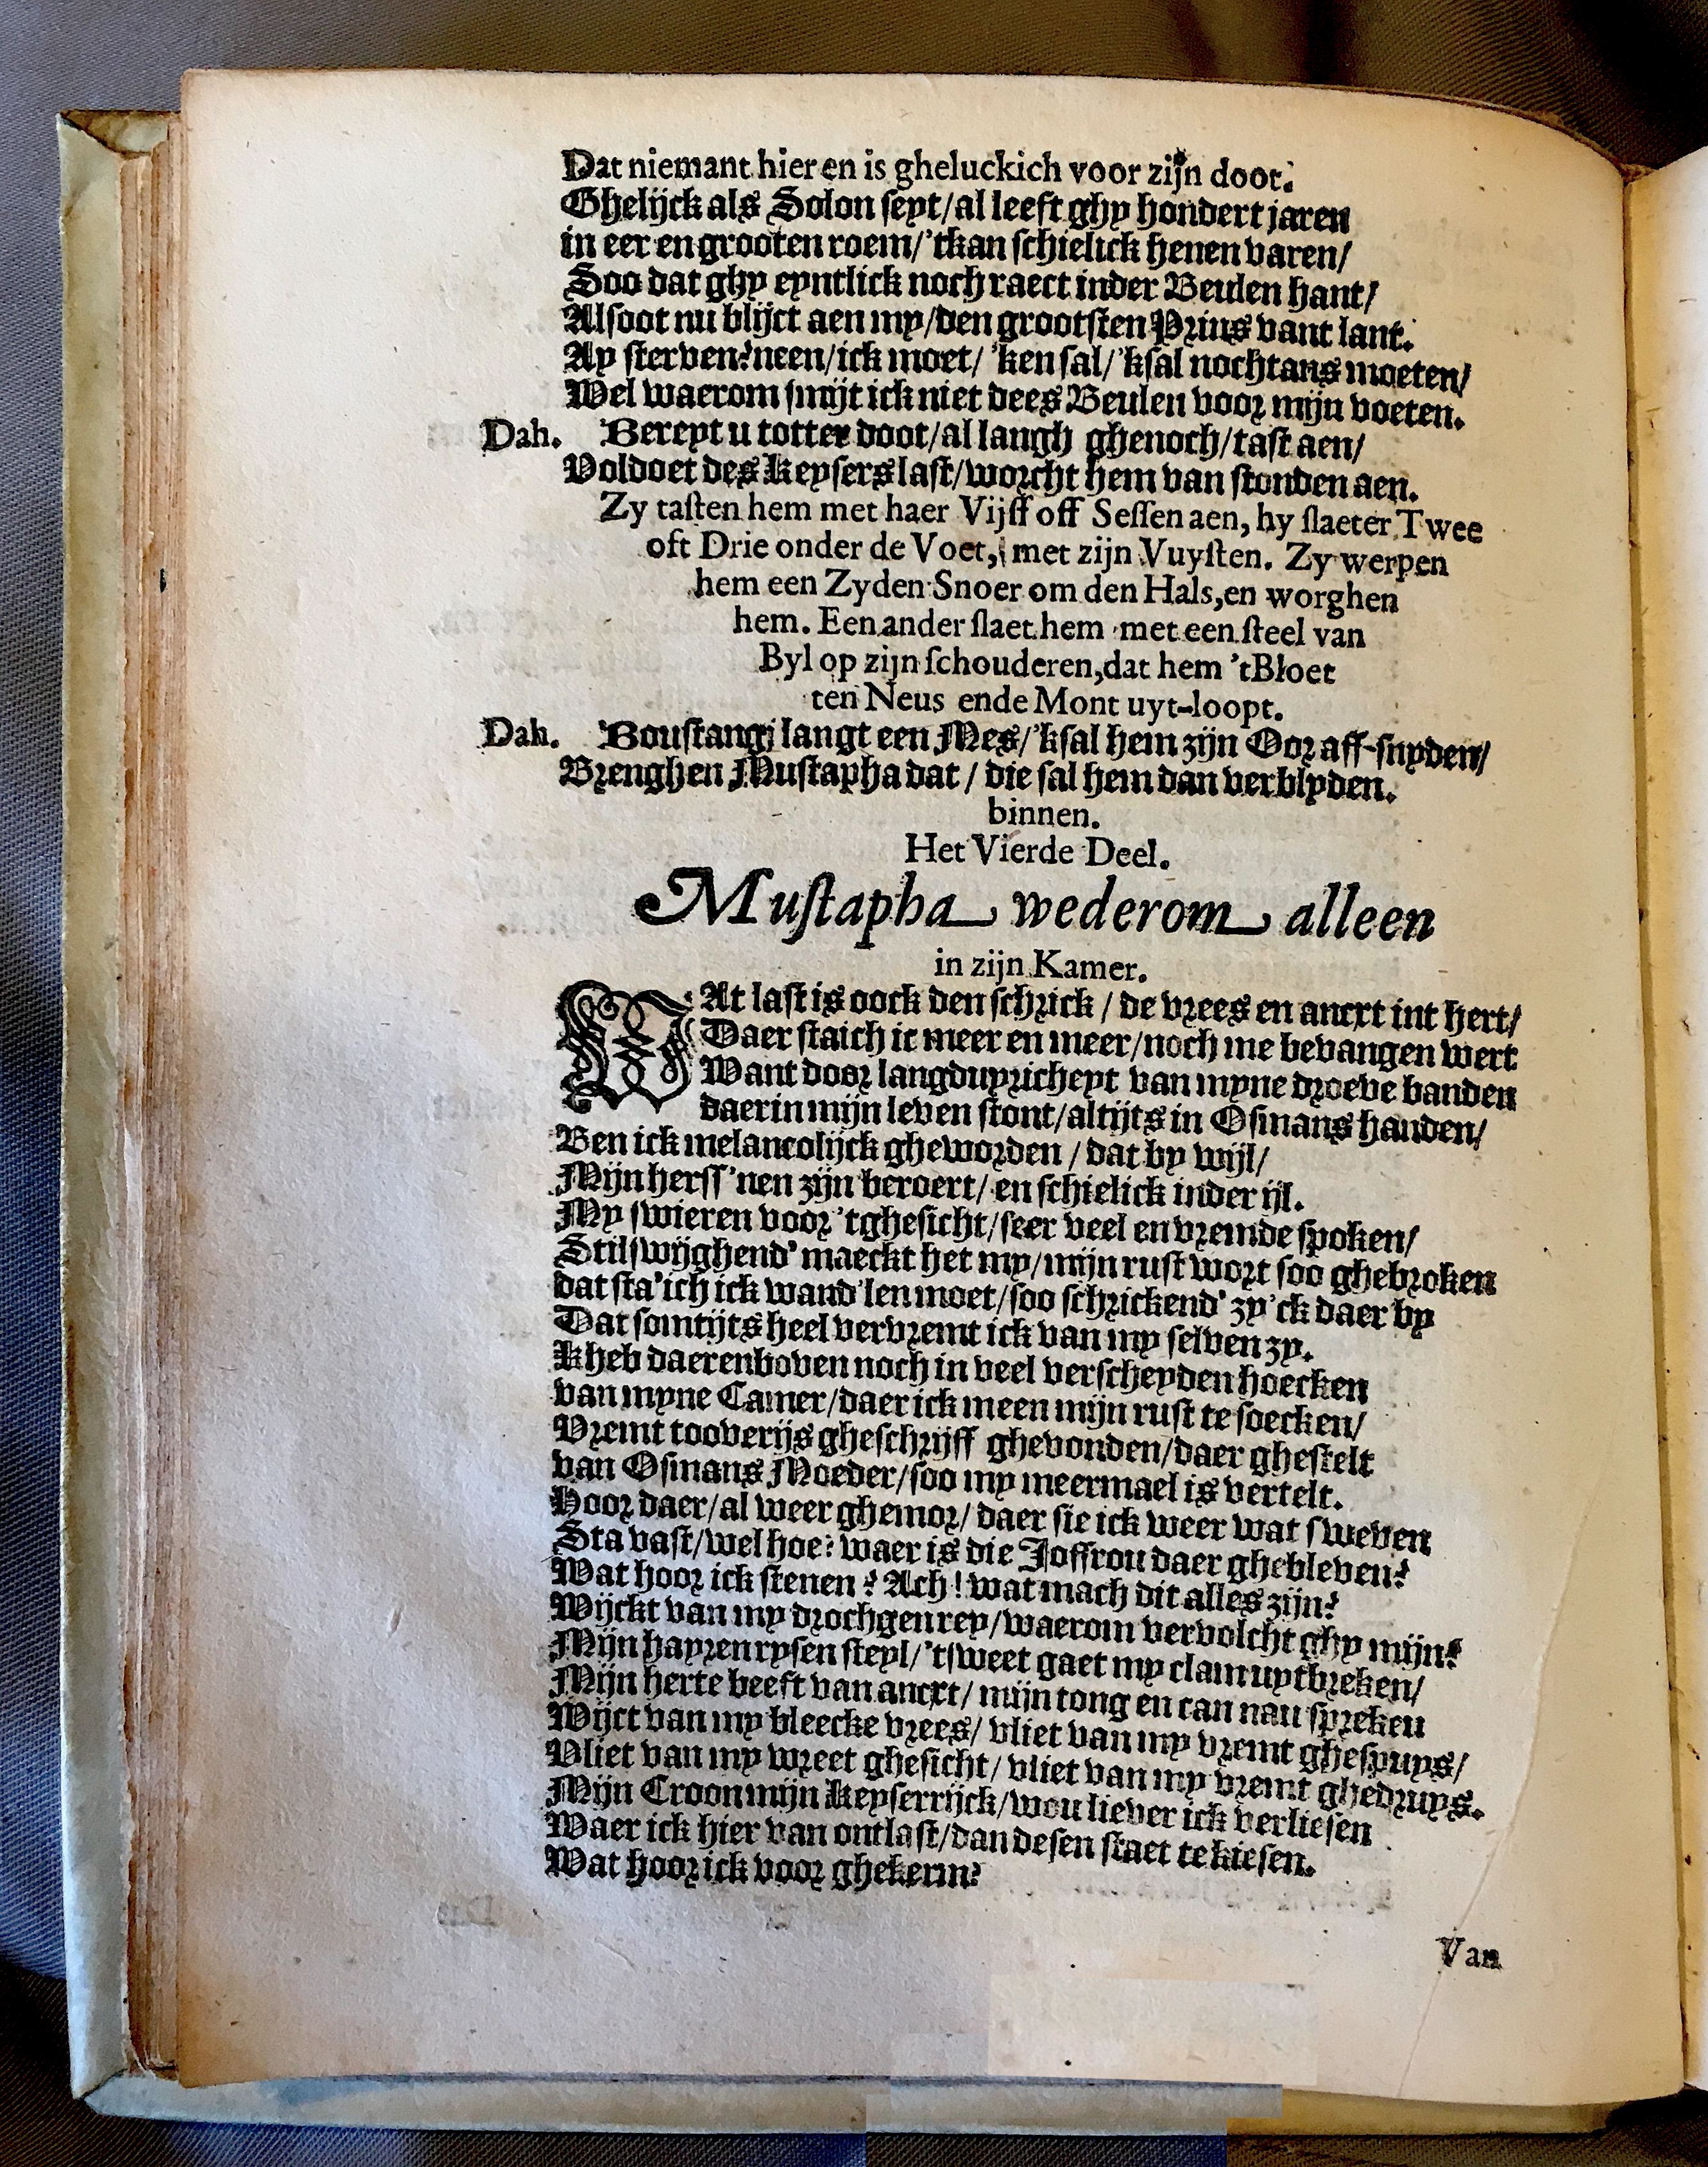 Dat niemant hier en is gheluckich voor zijn doot.
Ghelijck als Solon seyt/al leeft ghy hondert jaren
in eer en grooten roem/'tkan schielick henen varen/
Soo dat ghy eyntlick noch raect inder Beulen hant/
Alsoot nu blijct aen my/den grootsten Prins vant lant.
Ay sterven? neen/ick moet/ 'ken sal/'ksal nochtans moeten/
Wel waerom smijt ick niet dees Beulen voor mijn voeten.
Dah. Bereyt u totter doot/al langh ghenoch/tast aen/
Voldoet des Keysers last/worcht hem van stonden aen.
Zy tasten hem met haer Vijff off Sessen aen, hy slaeter Twee
oft Drie onder de Voet, met zijn Vuysten. Zy werpen
hem een Zyden Snoer om den Hals, en worghen
hem. Een ander slaet hem met een steel van
Byl op zijn schouderen, dat hem 'tBloet
ten Neus ende Mont uyt-loopt.
Dah. Boustangi langt een Mes/'ksal hem zijn Oor aff-snyden/
Brenghen Mustapha dat / die sal hem dan verblyden.
binnen.
Het Vierde Deel.
Mustapha wederom alleen
in zijn Kamer.
WAt last is oock den schrick / de vrees en ancxt int hert/
Daer staich ic meer en meer/noch me bevangen wert
Want door langduyricheyt van myne droeve banden
daerin mijn leven stont/altijts in Osmans handen/
Ben ick melancolijck gheworden / dat by wijl/
Mijn herss'nen zijn beroert/ en schielick inder ijl.
My swieren voor 'tghesicht/seer veel en vremde spoken/
Stilswijghend' maeckt het my/mijn rust wort soo ghebroken
dat sta'ich ick wand'len moet/soo schrickend' zy'ck daer by
Dat somtijts heel vervremt ick van my selven zy.
Kheb daerenboven noch in veel verscheyden hoecken
van myne Camer/daer ick meen mijn rust te soecken/
Vremt tooverijs gheschrijff ghevonden/daer ghestelt
van Osmans Moeder/soo my meermael is vertelt.
Hoor daer/al weer ghemor/ daer sie ick weer wat sweven
Sta vast/wel hoe? waer is die Joffrou daer ghebleven?
Wat hoor ick stenen? Ach! wat mach dit alles zijn?
Wijckt van my drochgenrey/waerom vervolcht ghy mijn?
Mijn hayren rysen steyl/'tsweet gaet my clam uytbreken/
Mijn herte beeft van ancxt/ mijn tong en can nau spreken
Wijct van my bleecke vrees/ vliet van my vremt ghespuys/
Vliet van my wreet ghesicht/ vliet van my vremt ghedruys.
Mijn Croon mijn Keyserrijck/wou liever ick verliesen
Waer ick hier van ontlast/dan desen staet te kiesen.
Wat hoor ick voor ghekerm?
Van